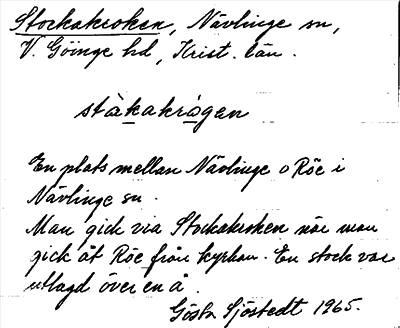 Stockakroken, Nävlinge sn,
V. Göinge hd, Krist. län.
ståkakrågen
En plats mellan Nävlinge o Röe i
Nävlinge sn.
Man gick via Stockakroken när man
gick åt Röe från kyrkan. En stock var
utlagd över en å.
Gösta Sjöstedt 1965.